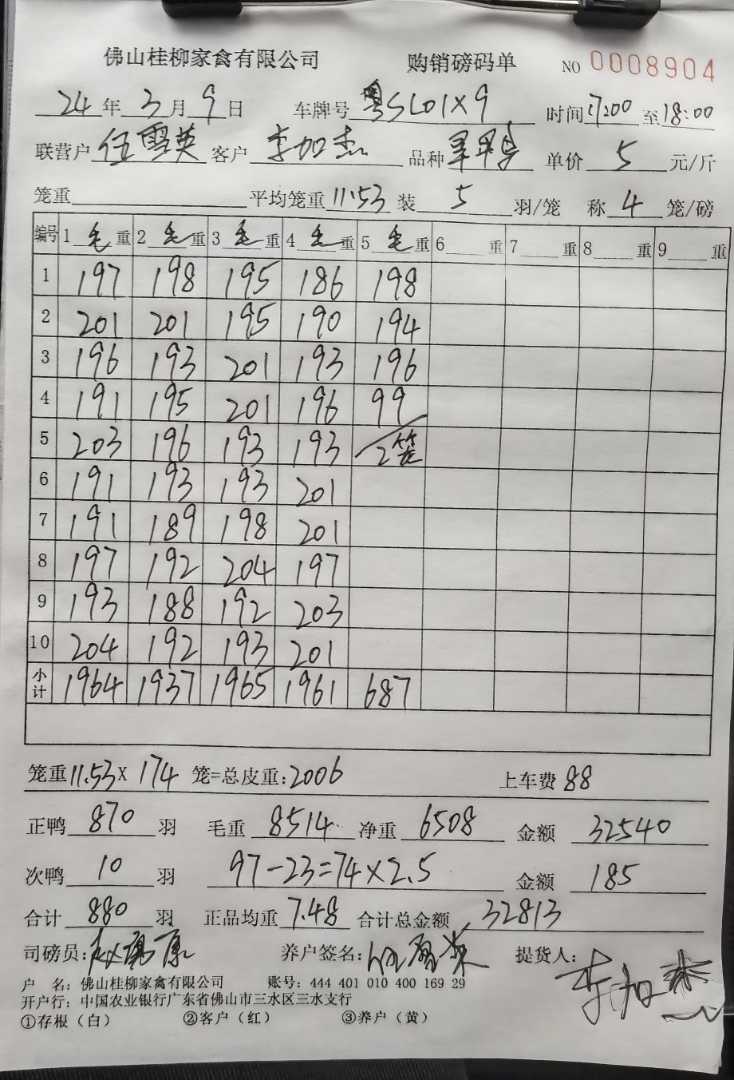 佛山桂柳家禽有限公司 购销磅码单 NO 0008904
24年3月9日 车牌号 粤SL01X9 时间17:00至18:00
联营户 伍雪英 客户 李加杰 品种 单价 5 元/斤
笼重 平均笼重11.53装 5 羽/笼 称 4 笼/磅
编号 1 毛 重 2 毛 重 3 毛 重 4 毛 重 5 毛 重 6 重 7 重 8 重 9 重
1 197 198 195 186 198
2 201 201 195 190 194
3 196 193 201 193 196
4 191 195 201 196 99
5 203 196 193 193 2笼
6 191 193 193 201
7 191 189 198 201
8 197 192 204 197
9 193 188 192 203
10 204 192 193 201
小计 1964 1937 1965 1961 687
笼重11.53X 174 笼=总皮重:2006 上车费 88
正鸭 870 羽 毛重 8514 净重 6508 金额 32540
次鸭 10 羽 97-23=74×2.5 金额 185
合计 880 羽 正品均重 7.48 合计总金额 32813
司磅员: 养户签名: 伍雪英 提货人: 李加杰
户 名: 佛山桂柳家禽有限公司 账号: 444 401 010 400 169 29
开户行: 中国农业银行广东省佛山市三水区三水支行
①存根（白） ②客户（红） ③养户（黄）